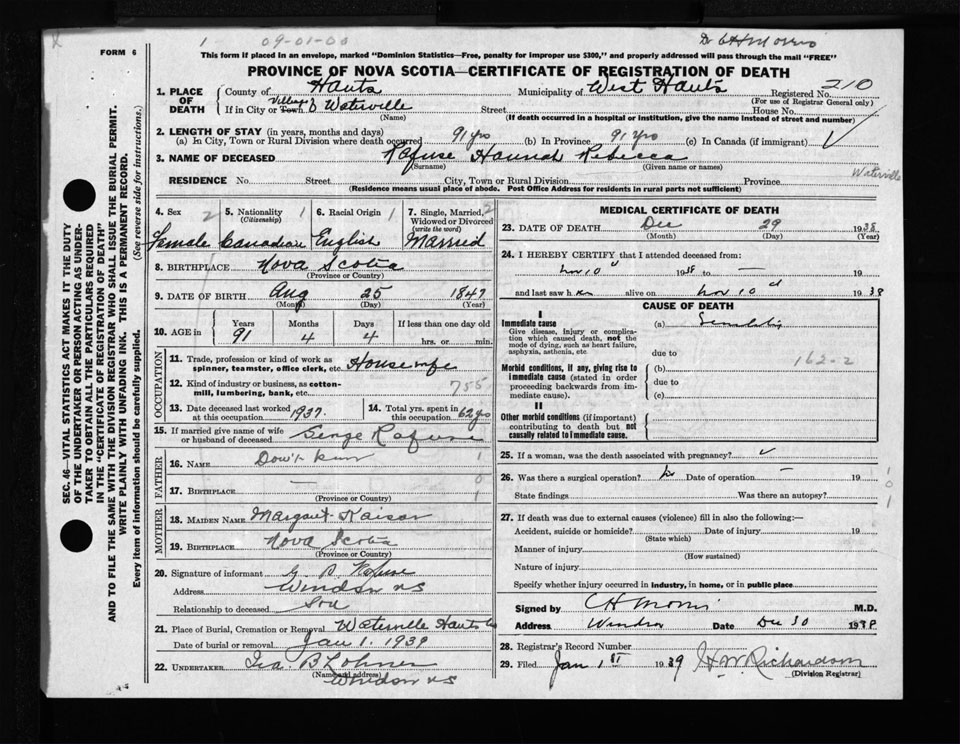 1 09-01-00
Dr CH Morris
FORM 6
This form if placed in an envelope, marked "Dominion Statistics—Free, penalty for improper use $300," and properly addressed will pass through the mail "FREE"
PROVINCE OF NOVA SCOTIA—CERTIFICATE OF REGISTRATION OF DEATH
1. PLACE OF DEATH
County of Hants Municipality of West Hants Registered No. 210
(For use of Registrar General only)
If in City or Town Village Waterville Street House No.
(Name) (If death occurred in a hospital or institution, give the name instead of street and number)
2. LENGTH OF STAY (in years, months and days)
(a) In City, Town or Rural Division where death occurred 91 yrs (b) In Province 91 Yrs (c) In Canada (if immigrant)
3. NAME OF DECEASED Rafuse Hannah Rebecca
(Surname) (Given name or names)
Waterville
RESIDENCE No. Street City, Town or Rural Division Province
(Residence means usual place of abode. Post Office Address for residents in rural parts not sufficient)
SEC. 46—VITAL STATISTICS ACT MAKES IT THE DUTY
OF THE UNDERTAKER OR PERSON ACTING AS UNDER-
TAKER TO OBTAIN ALL THE PARTICULARS REQUIRED
IN THE "CERTIFICATE OF REGISTRATION OF DEATH"
AND TO FILE THE SAME WITH THE DIVISION REGISTRAR WHO SHALL ISSUE THE BURIAL PERMIT.
WRITE PLAINLY WITH UNFADING INK. THIS IS A PERMANENT RECORD.
Every item of information should be carefully supplied. (See reverse side for instructions.)
4. Sex 2 5. Nationality 1 6. Racial Origin 1 7. Single, Married, Widowed or Divorced 2
(Citizenship) (write the word)
Female Canadian English Married
8. BIRTHPLACE Nova Scotia
(Province or Country)
9. DATE OF BIRTH Aug 25 1847
(Month) (Day) (Year)
10. AGE in Years Months Days If less than one day old
91 4 4 hrs. or min.
OCCUPATION
11. Trade, profession or kind of work as
spinner, teamster, office clerk, etc. Housewife
12. Kind of industry or business, as cotton-
mill, lumbering, bank, etc. 755
13. Date deceased last worked at this occupation 1937. 14. Total yrs. spent in this occupation 62 yrs
15. If married give name of wife or husband of deceased George Rafuse
FATHER
16. NAME Don't know 1
17. BIRTHPLACE — 0
(Province or Country) 1
MOTHER
18. MAIDEN NAME Margaret Kaiser
19. BIRTHPLACE Nova Scotia
(Province or Country)
20. Signature of informant G. B. Rafuse
Address Windsor NS
Relationship to deceased Son
21. Place of Burial, Cremation or Removal Waterville Hants Co
Date of burial or removal Jan 1. 1939
22. UNDERTAKER Ira B Lohnes
(Name and address)
Windsor NS
MEDICAL CERTIFICATE OF DEATH
23. DATE OF DEATH Dec 29 1938
(Month) (Day) (Year)
24. I HEREBY CERTIFY that I attended deceased from:
Nov 10 1938 to — 19
and last saw her alive on Nov 10 1938
CAUSE OF DEATH
I
Immediate cause (a) Senility
Give disease, injury or complication which caused death, not the mode of dying, such as heart failure, asphyxia, asthenia, etc.
due to
162-2
Morbid conditions, if any, giving rise to immediate cause (stated in order proceeding backwards from immediate cause). (b)
due to
(c)
II
Other morbid conditions (if important) contributing to death but not causally related to immediate cause.
25. If a woman, was the death associated with pregnancy?
26. Was there a surgical operation? No Date of operation — 19
State findings Was there an autopsy?
1
0
1
27. If death was due to external causes (violence) fill in also the following:—
Accident, suicide or homicide? Date of injury 19
(State which)
Manner of injury
(How sustained)
Nature of injury
Specify whether injury occurred in industry, in home, or in public place
Signed by CH Morris M.D.
Address Windsor Date Dec 30 1938
28. Registrar's Record Number
29. Filed Jan 1st 1939 H.W. Richardson
(Division Registrar)